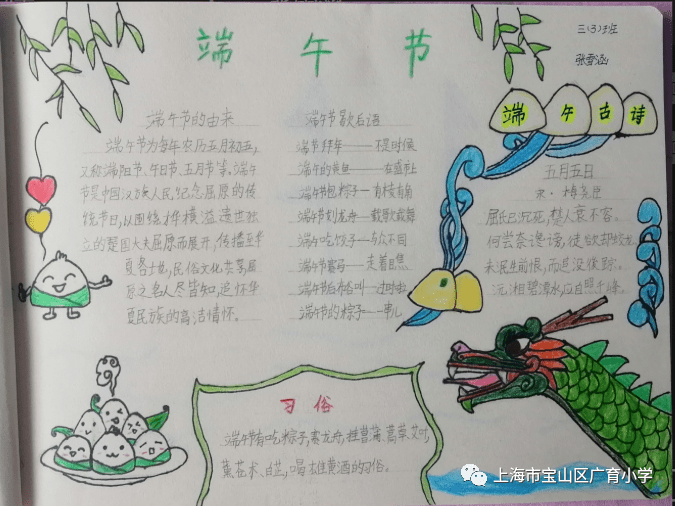 端午节
三(3)班
张雪涵
端午节的由来
端午节为每年农历五月初五,
又称端阳节、午日节、五月节等,端午
节是中国汉族人民纪念屈原的传
统节日,以围绕才华横溢、遗世独
立的楚国大夫屈原而展开,传播至华
夏各地,民俗文化共享,屈
原之名人尽皆知,追怀华
夏民族的高洁情怀。
端午节歇后语
端节拜年——不是时候
端午的黄鱼——在盛市上
端午节包粽子——有棱有角
端午节划龙舟——载歌载舞
端午吃饺子——与众不同
端午节赛马——走着瞧
端午节后布谷叫——过时
端午节的粽子——串儿
端午古诗
五月五日
宋·梅尧臣
屈氏已沉死,楚人哀不容。
何尝奈谗谤,徒欲却蛟龙。
未泯生前恨,而追没後踪。
沅湘碧潭水,应自照千峰。
习俗
端午节有吃粽子,赛龙舟,挂菖蒲、蒿草、艾叶,
薰苍术、白芷,喝雄黄酒的习俗。
上海市宝山区广育小学